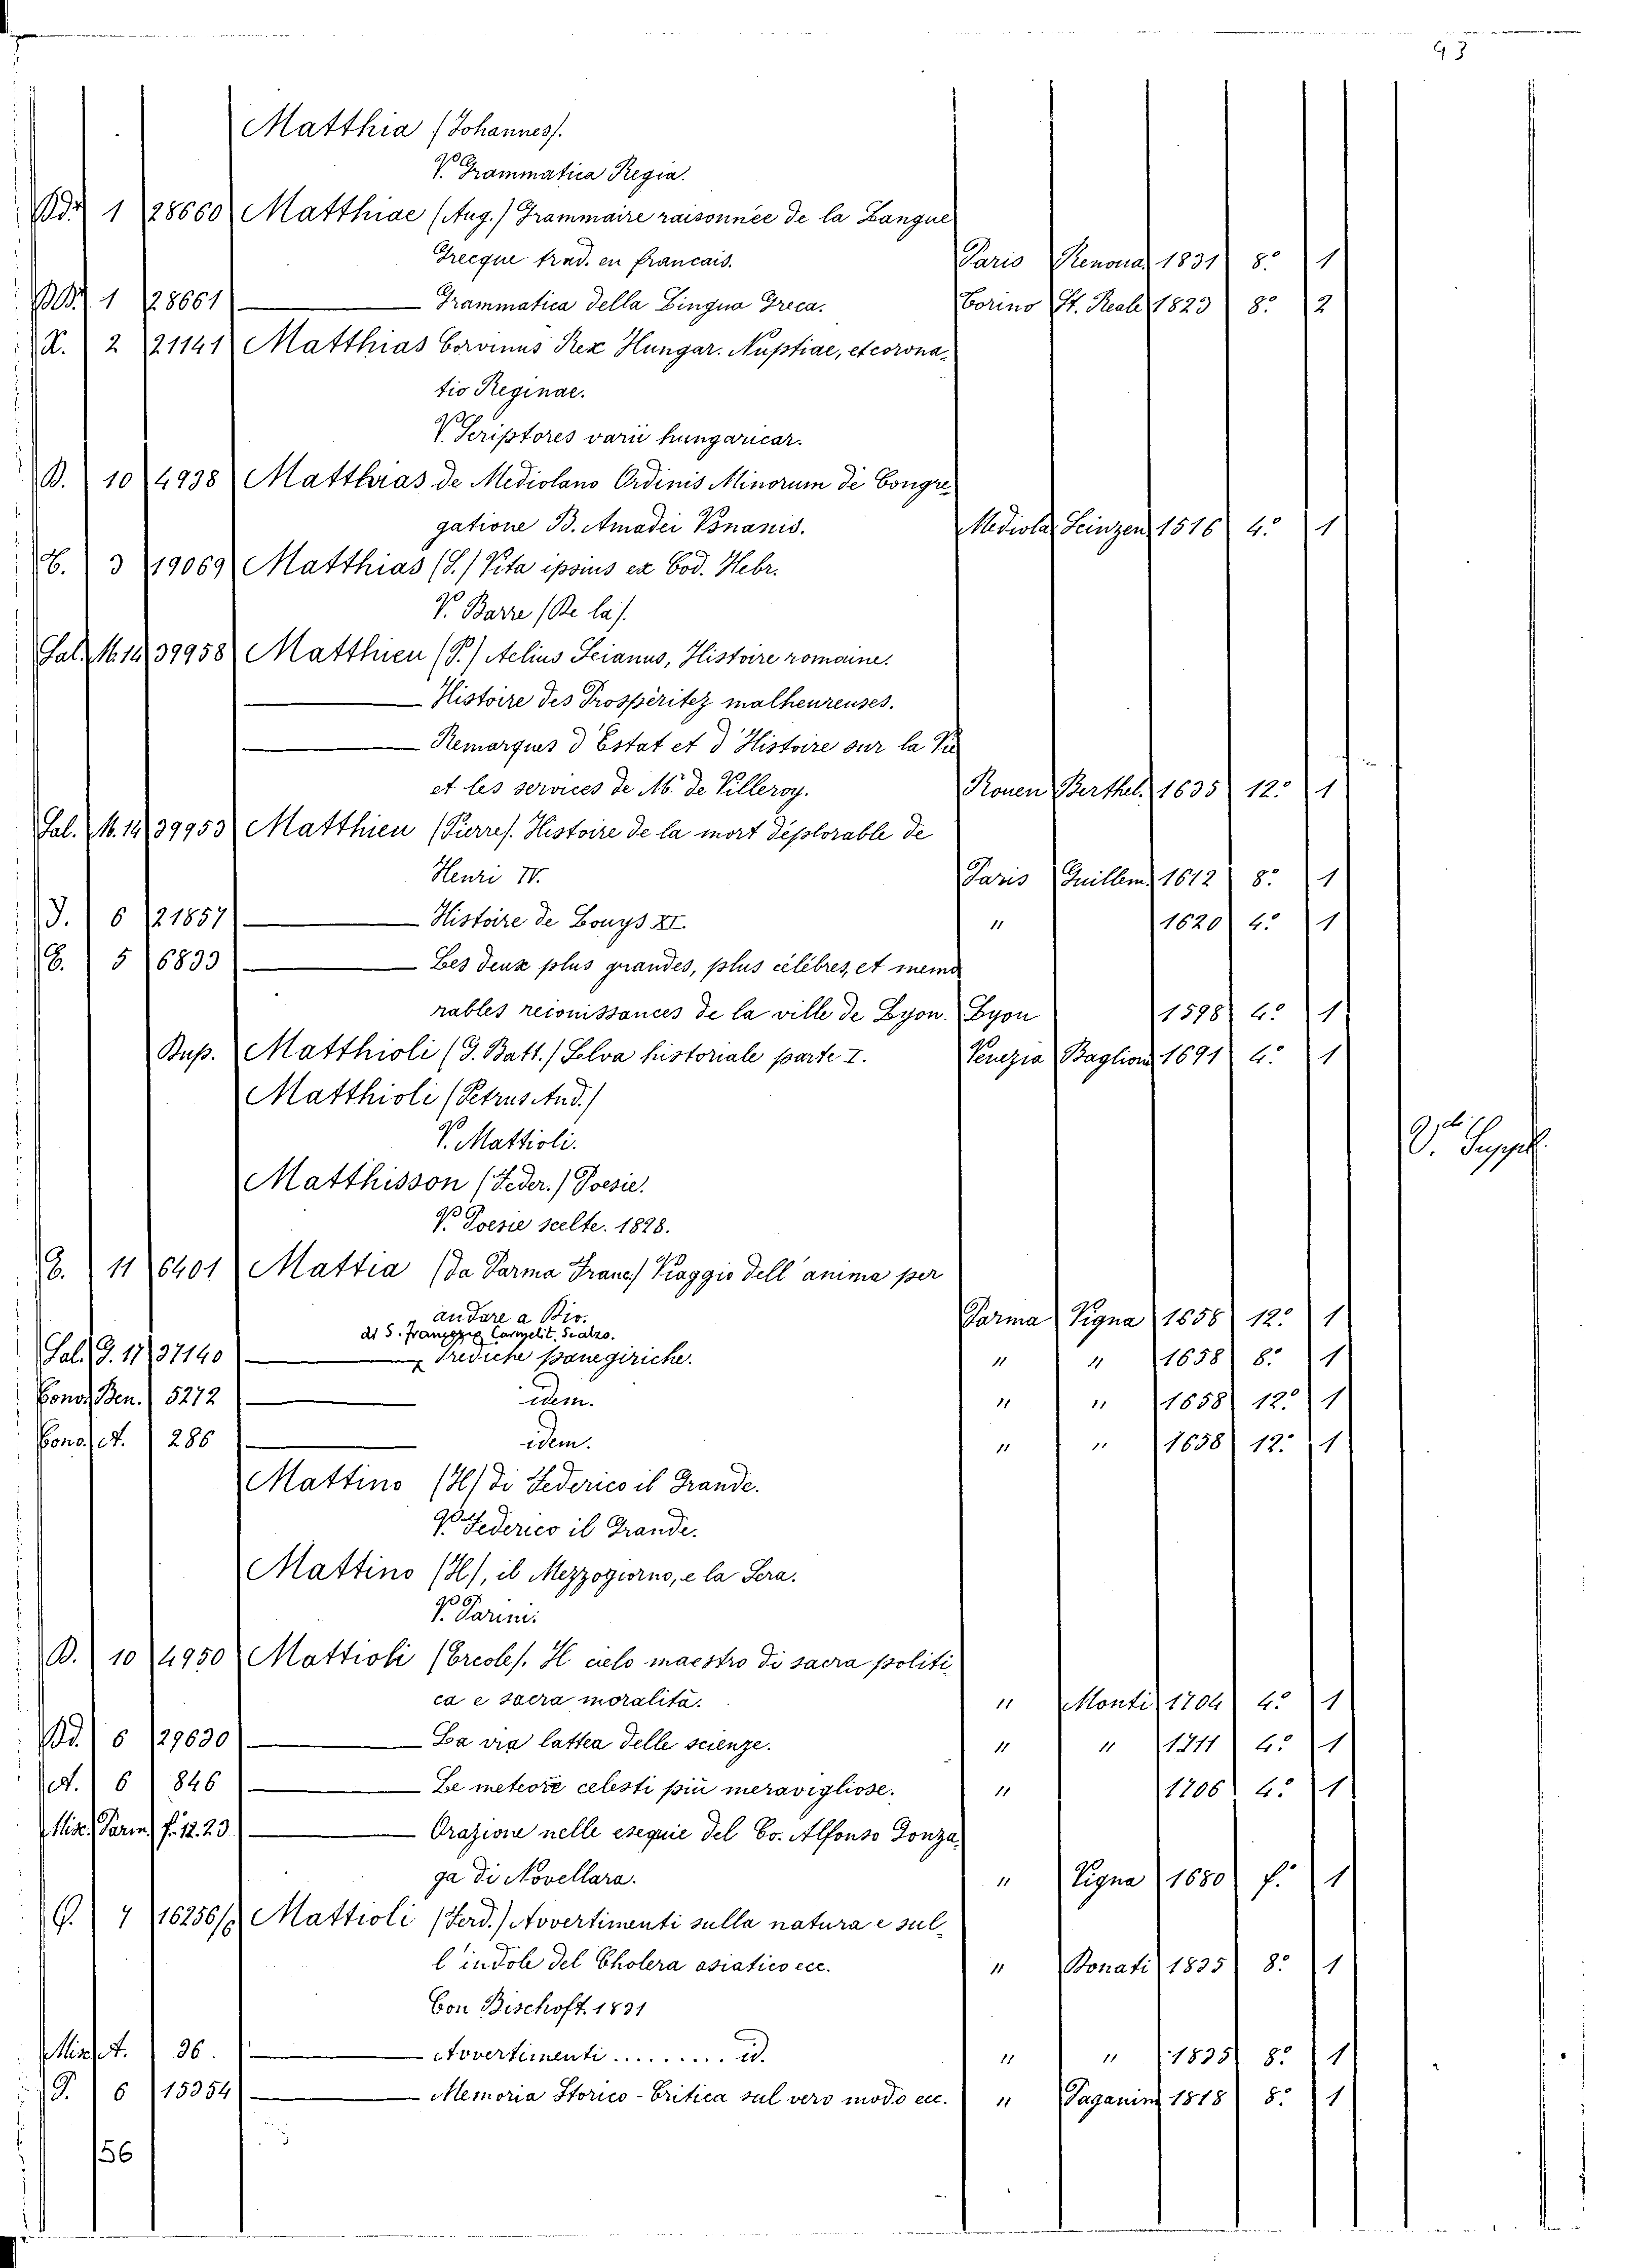 93
Matthia (Johannes).
V. Grammatica Regia.
Bd. 1 28660 Matthiae (Aug.) Grammaire raisonnée de la Langue
Grecque trad. en francais. Paris Renoua. 1831 8.° 1
BB. 1 28661 ——— Grammatica della Lingua Greca. Torino St. Reale 1823 8.° 2
X. 2 21141 Matthias Corvinus Rex Hungar. Nuptiae, et corona-
tio Reginae.
V. Scriptores varii hungaricar.
B. 10 4938 Matthias de Mediolano Ordinis Minorum de Congre-
gatione B. Amadei Ponanis. Mediola. Leinzen. 1516 4.° 1
C. 3 19069 Matthias (S.) Vita ipsius ex Cod. Hebr.
V. Barre (De la).
Sal. M. 14 39958 Matthieu (P.) Aelius Seianus, Histoire romaine.
——— Histoire des Prospéritez malheureuses.
——— Remarques d'Estat et d'Histoire sur la Vie
et les services de M. de Villeroy. Rouen Berthel. 1635 12.° 1
Sal. M. 14 39953 Matthieu (Pierre). Histoire de la mort déplorable de
Henri IV. Paris Guillem. 1612 8.° 1
J. 6 21857 ——— Histoire de Louys XI. " 1620 4.° 1
C. 5 6833 ——— Les deux plus grandes, plus célébres, et memo
rables reionissances de la ville de Lyon. Lyon 1598 4.° 1
Dup. Matthioli (G. Batt.) Selva historiale parte I. Venezia Baglioni 1691 4.° 1
Matthioli (Petrus And.)
V. Mattioli. V. Suppl.
Matthisson (Feder.) Poesie.
V. Poesie scelte. 1828.
C. 11 6401 Mattia (da Parma Franc.) Viaggio dell'anima per
andare a Dio. Parma Vigna 1658 12.° 1
di S. Francesco Carmelit. Scalzo.
Sal. G. 11 37140 ——— Prediche panegiriche. " " 1658 8.° 1
Cono. Ben. 5272 ——— idem. " " 1658 12.° 1
Cono. A. 286 ——— idem. " " 1658 12.° 1
Mattino (Il) di Federico il Grande.
V. Federico il Grande.
Mattino (Il), il Mezzogiorno, e la Sera.
V. Parini.
B. 10 4950 Mattioli (Ercole). Il cielo maestro di sacra politi-
ca e sacra moralità. " Monti 1704 4.° 1
Bd. 6 29630 ——— La via lattea delle scienze. " " 1711 4.° 1
A. 6 846 ——— Le meteore celesti più meravigliose. " 1706 4.° 1
Misc. Parm. f. 12. 23 ——— Orazione nelle esequie del Co. Alfonso Gonza-
ga di Novellara. " Vigna 1680 f.° 1
G. 4 16256/6 Mattioli (Ferd.) Avvertimenti sulla natura e sul-
l'indole del Cholera asiatico ecc. " Donati 1835 8.° 1
Con Bischoft. 1831
Misc. A. 36. ——— Avvertimenti ......... id. " " 1835 8.° 1
G. 6 15354 ——— Memoria Storico-Critica sul vero modo ecc. " Paganini 1818 8.° 1
56